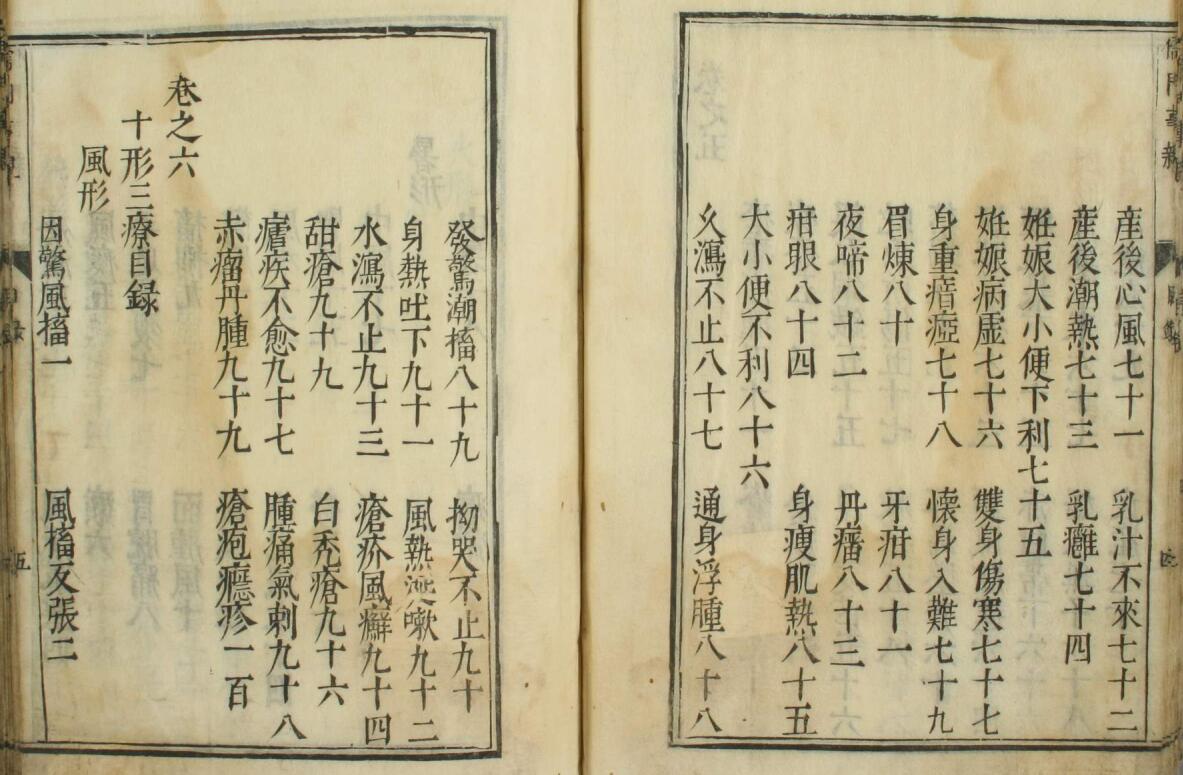 産後心風七十一　乳汁不來七十二
産後潮熱七十三　乳癰七十四
姙娠大小便下利七十五
姙娠病虛七十六　雙身傷寒七十七
身重瘖瘂七十八　懷身入難七十九
眉煉八十　牙疳八十一
夜啼八十二　丹瘤八十三
疳眼八十四　身瘦肌熱八十五
大小便不利八十六
久瀉不止八十七　通身浮腫八十八
發驚潮搐八十九　拗哭不止九十
身熱吐下九十一　風熱涎嗽九十二
水瀉不止九十三　瘡疥風癬九十四
甜瘡九十九　白禿瘡九十六
瘧疾不愈九十七　腫痛氣刺九十八
赤瘤丹腫九十九　瘡疱癮疹一百
卷之六
十形三療目録
風形
因驚風搐一　風搐反張二